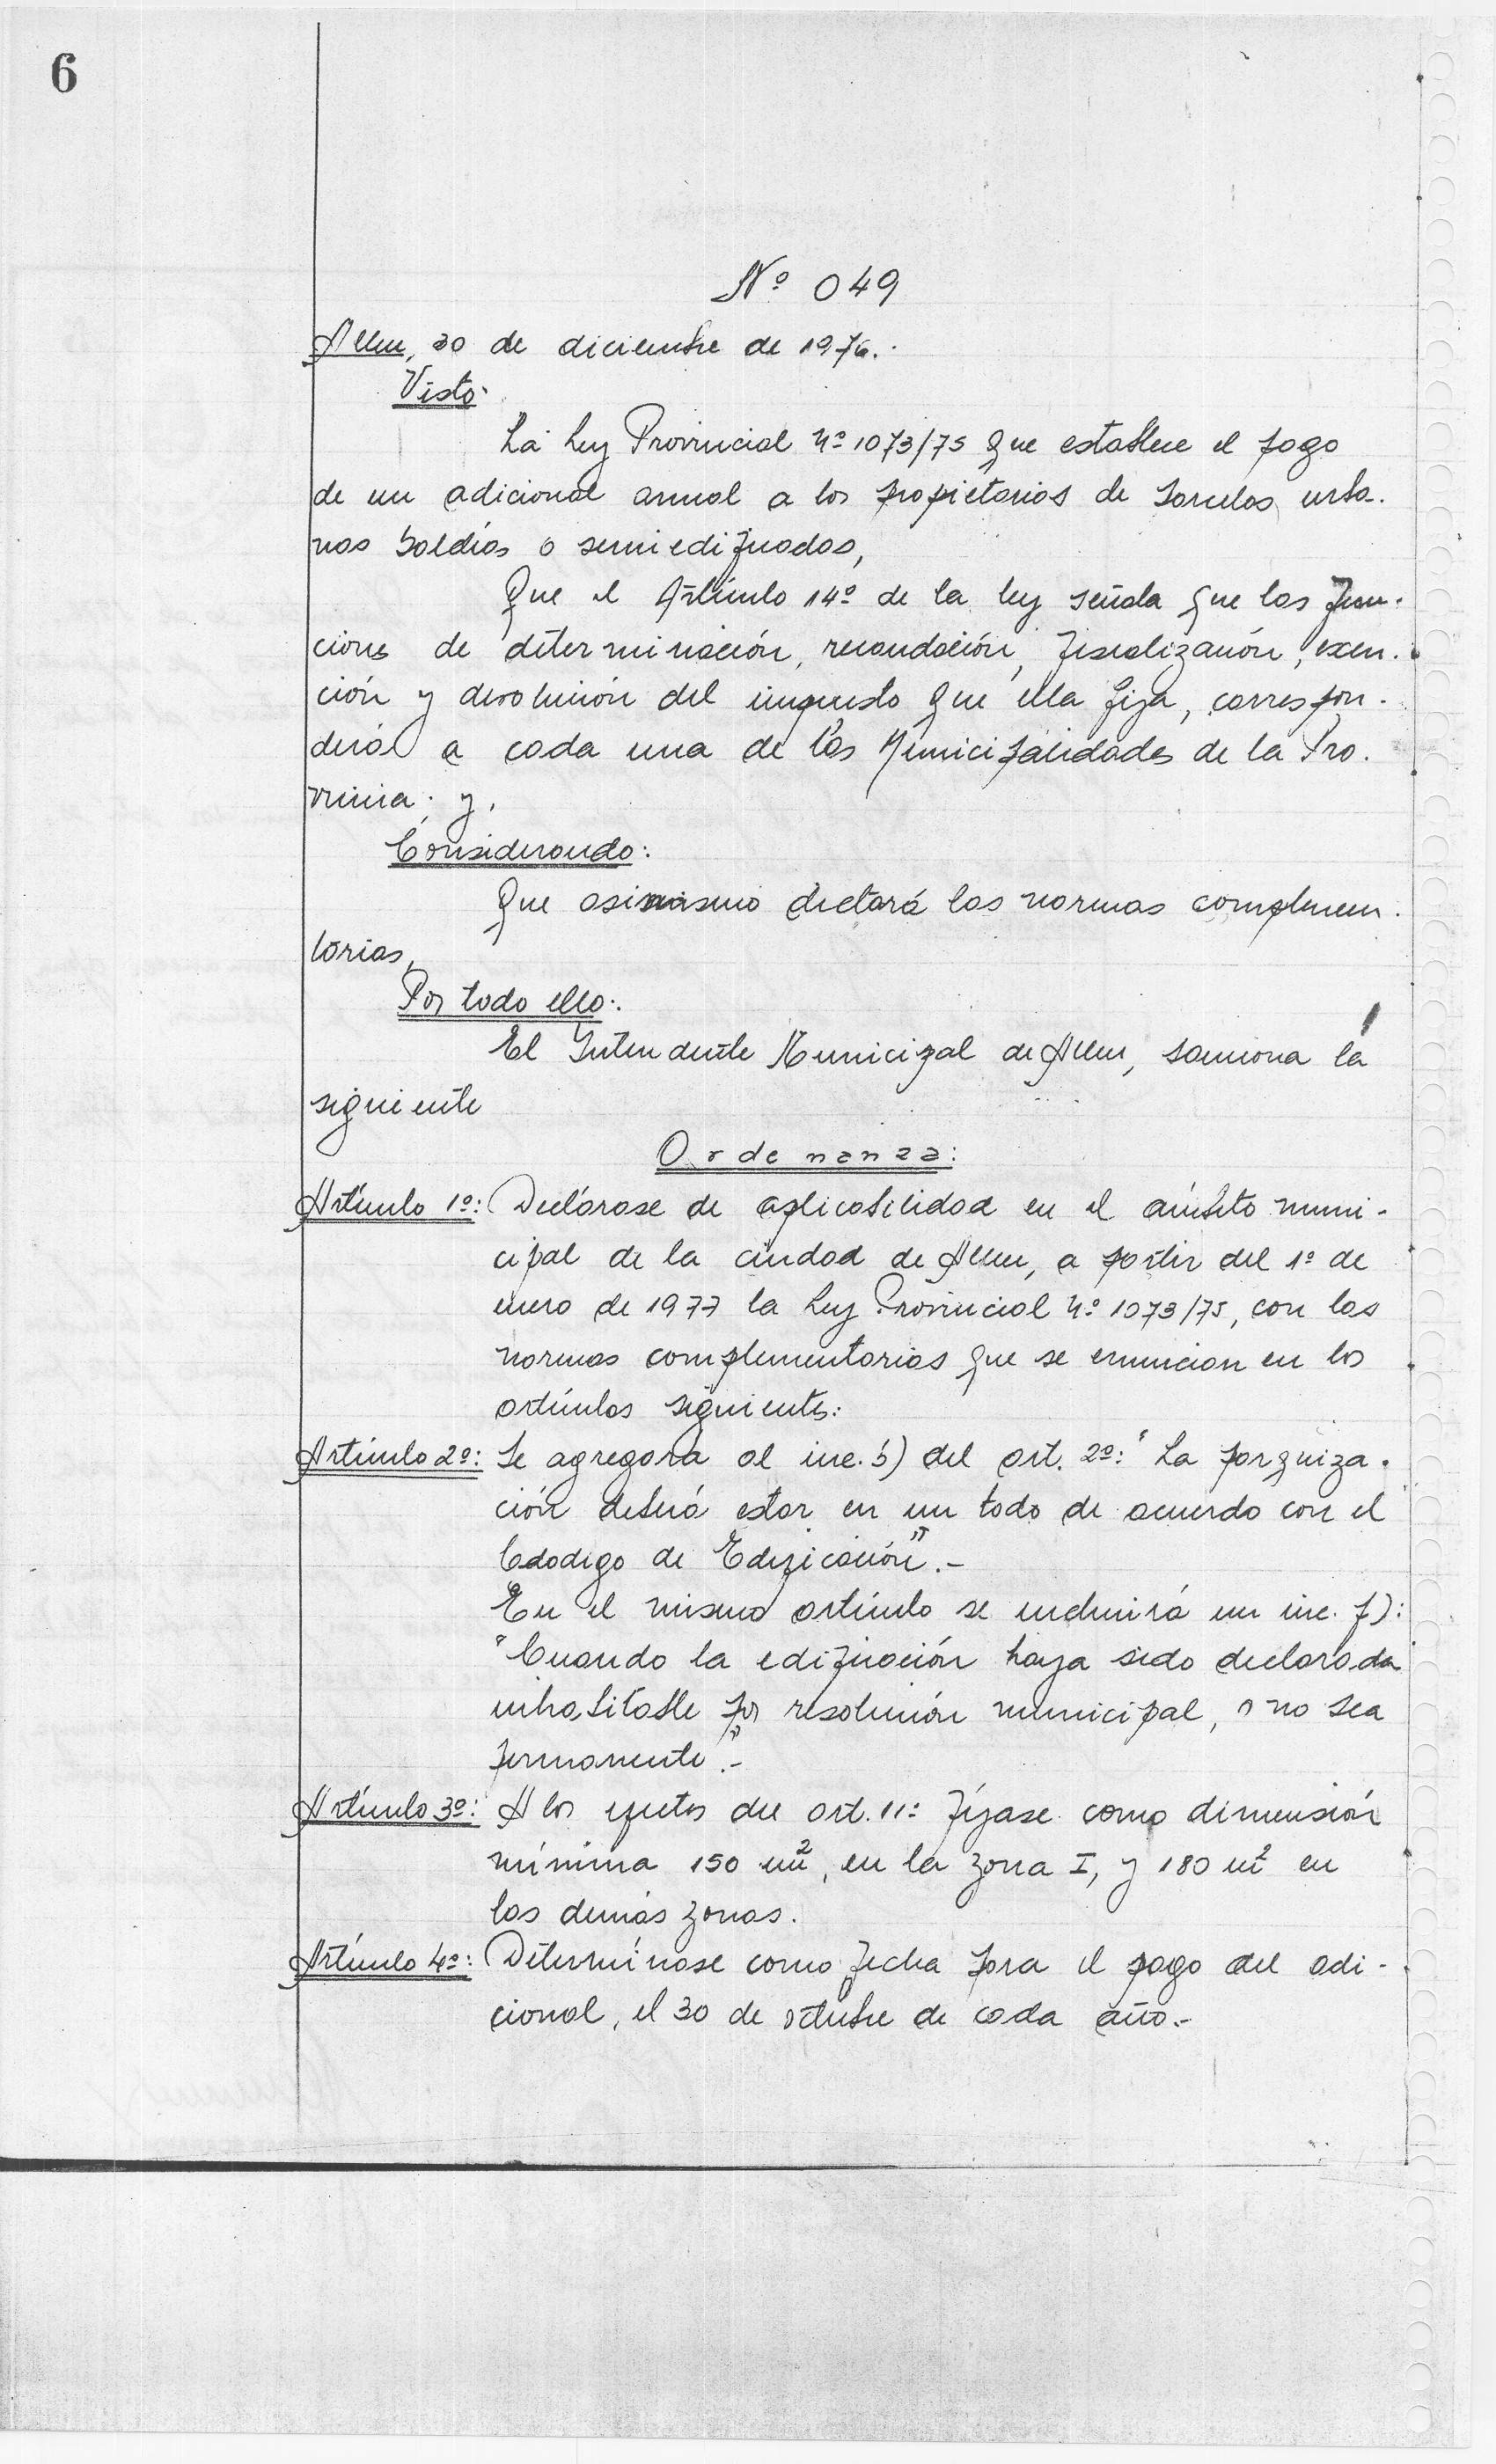 6
Nº 049
Allen, 30 de diciembre de 1976.-
Visto:
La Ley Provincial Nº 1073/75 que establece el pago
de un adicional anual a los propietarios de parcelas urba-
nas baldías o semiedificadas,
Que el Artículo 14º de la ley señala que las fun-
ciones de determinación, recaudación, fiscalización, exen-
ción y devolución del impuesto que ella fija, correspon-
derá a cada una de las Municipalidades de la Pro-
vincia; y,
Considerando:
Que asimismo dictará las normas complemen-
torias,
Por todo ello:
El Intendente Municipal de Allen, sanciona la
siguiente
Ordenanza:
Artículo 1º: Declárase de aplicabilidad en el ámbito muni-
cipal de la ciudad de Allen, a partir del 1º de
enero de 1977 la Ley Provincial Nº 1073/75, con las
normas complementarias que se enuncian en los
artículos siguientes:
Artículo 2º: Se agregará al inc. b) del art. 2º: "La parquiza-
ción deberá estar en un todo de acuerdo con el
Cdodigo de Edificación".-
En el mismo artículo se incluirá un inc. f):
"Cuando la edificación haya sido declarada
inhabitable por resolución municipal, o no sea
permanente".-
Artículo 3º: A los efectos del art. 11º fíjase como dimensión
mínima 150 m², en la zona I, y 180 m² en
las demás zonas.
Artículo 4º: Determínase como fecha para el pago del adi-
cional, el 30 de octubre de cada año.-